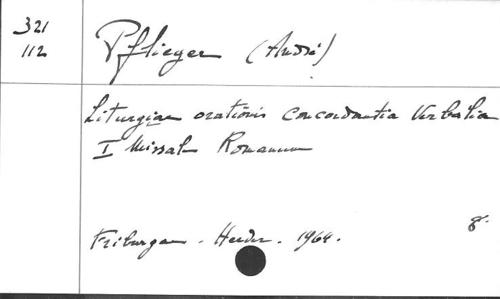 321
112
Pflieger (André)
Liturgiae orationis concordantia verbalia
I Missale Romanum
Friburgae. Herder. 1964.
8.